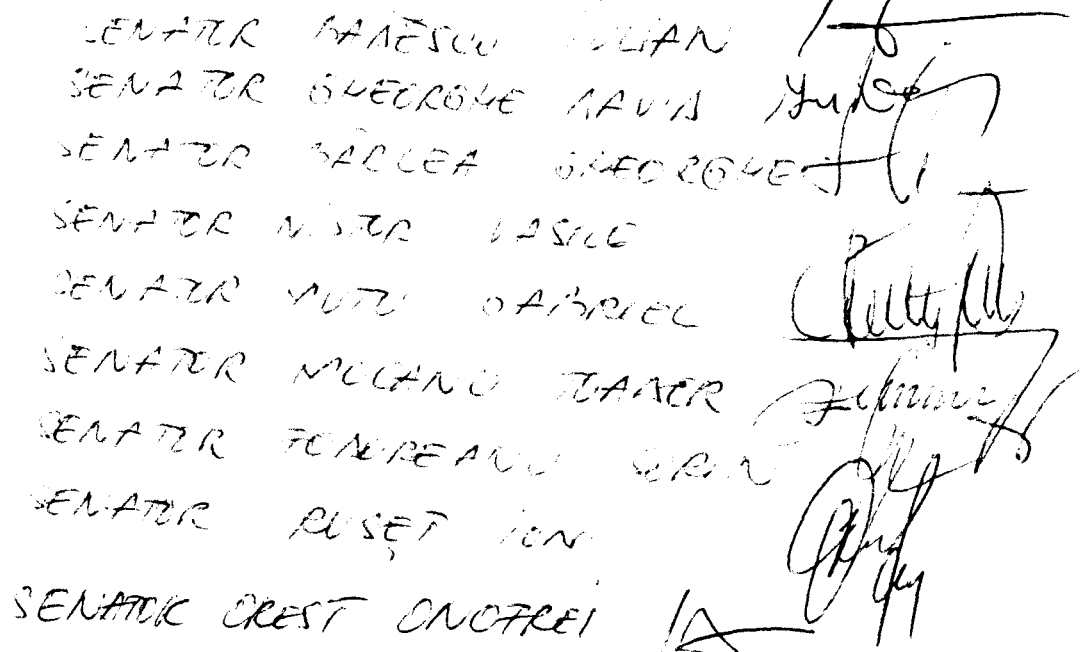 SENATOR BĂNESCU IULIAN
SENATOR GHEORGHE DAVID
SENATOR BÂRLEA GHEORGHE
SENATOR NISTOR VASILE
SENATOR MUTU GABRIEL
SENATOR MOCANU TOADER
SENATOR SORIN
SENATOR RUSEȚ ION
SENATOR OREST ONOFREI